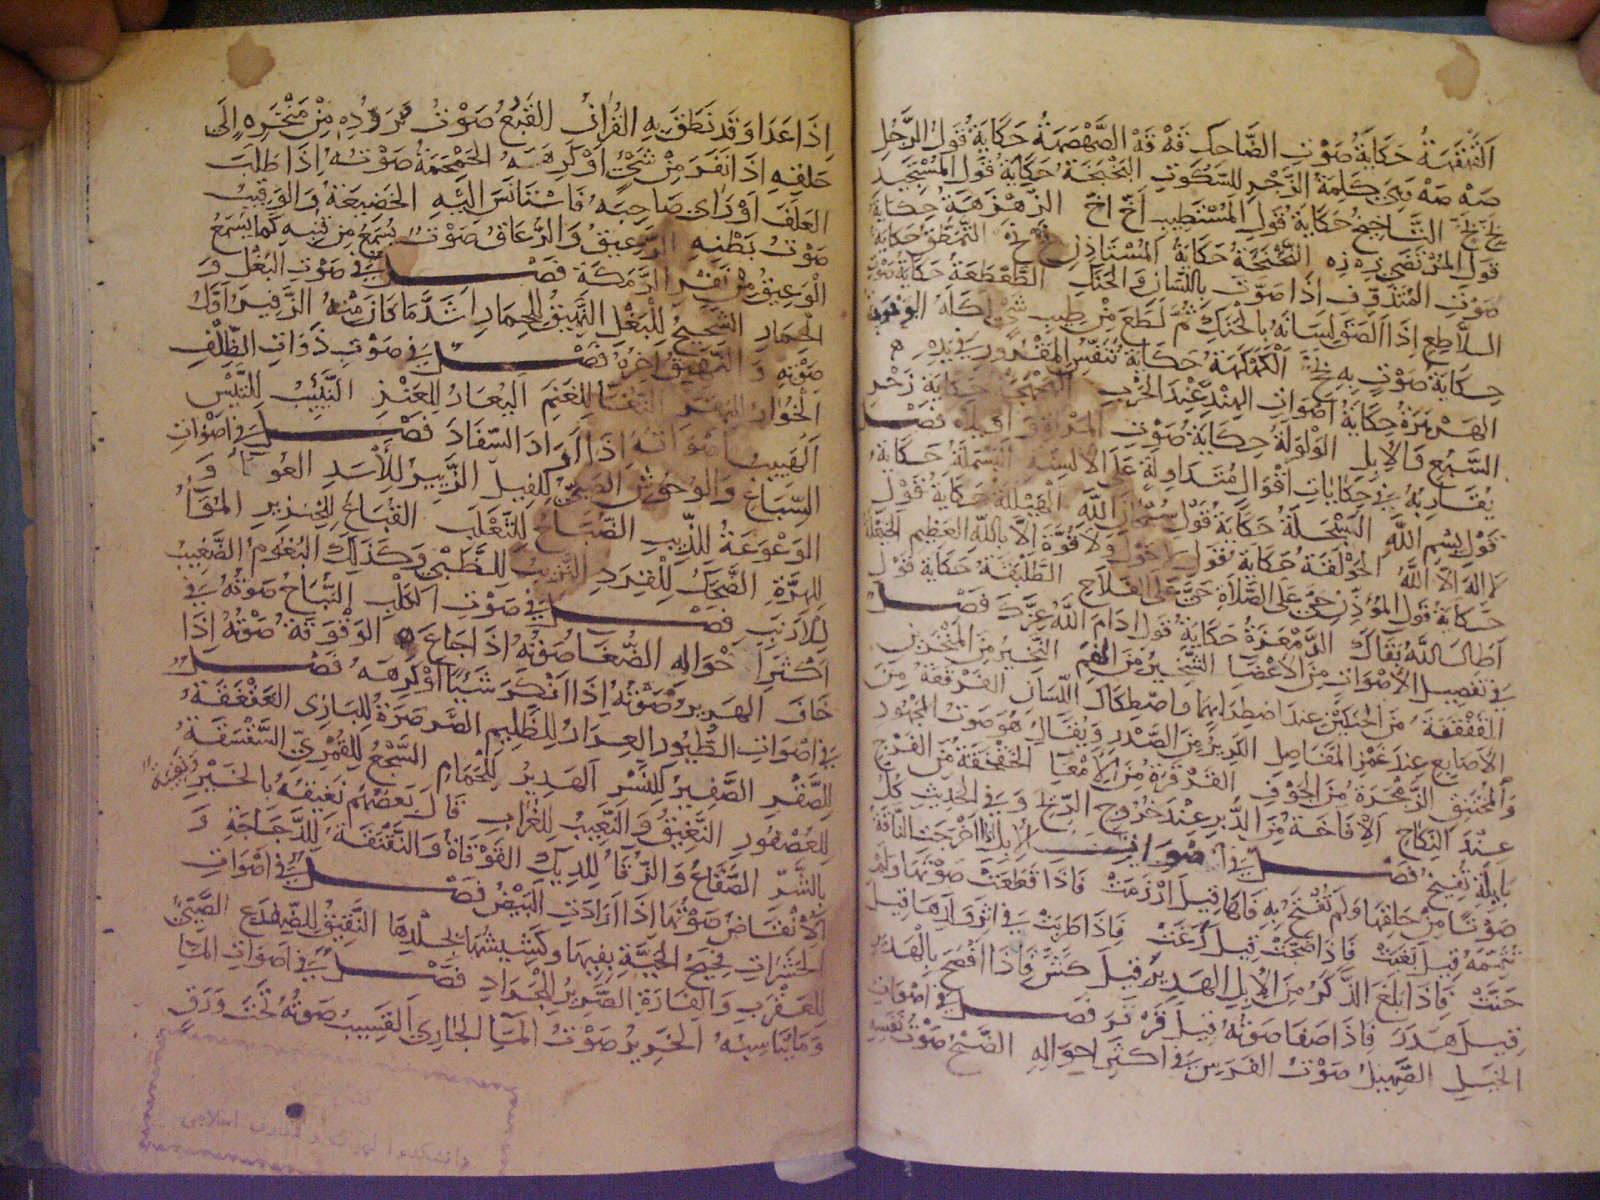 القهقهة حكاية صوت الضاحك قه قه الصهصهة حكاية قول الرجل
صه صه وهي كلمة الزجر للسكوت البخبخة حكاية قول المستجيد
بخ بخ التاخيخ حكاية قول المستطيب اخ اخ الزهزهة حكاية
قول المرتضي زه زه النحنحة حكاية المستاذن التمطق حكاية
صوت المتذوق اذا صوت باللسان والحنك الطعطعة حكاية صوت
اللاطع اذا الصق لسانه بالحنك ثم لطع من طيب شي اكله
حكاية صوت به بح الكهكهة حكاية تنفس المقرور في يده
حكاية اصوات الهند عند الحرب حكاية زجر
السبع والابل الولولة حكاية صوت المراة وا ويلاه فصل
يقاربه في حكايات اقوال متداولة على الالسنة البسملة حكاية
قول بسم الله السبحلة حكاية قول سبحان الله الهيللة حكاية قول
لا اله الا الله الحولقة حكاية قول لا حول ولا قوة الا بالله العظيم الحيعلة
حكاية قول المؤذن حي على الصلاة حي على الفلاح الطلبقة حكاية قول
اطال الله بقاك الدمعزة حكاية قول ادام الله عزك فصل
في تفصيل الاصوات من الاعضا الشخير من الفم النخير من المنخرين
القفقفة من الحنكين عند اضطرابهما واصطكاك اللسان الفرقعة من
الاصابع عند غمز المفاصل الكرير من الصدر ويقال هو صوت المجهود
والمختنق الزمجرة من الجوف القرقرة من الامعا الخقخقة من الفرج
عند النكاح الافاخة من الدبر عند خروج الريح وفي الحديث كل
بايلة تفيخ فصل في اصوات الابل اذا اخرجت الناقة
صوتا من حلقها ولم تفتح به فاها قيل ارزمت فاذا قطعت صوتها ولم
تتممه قيل بغمت فاذا ضجت قيل رغت فاذا طربت في اثر ولدها قيل
حنت فاذا بلغ الذكر من الابل الهدير قيل كش فاذا افصح بالهدير
قيل هدر فاذا صفا صوته قيل قرقر فصل في اصوات
الخيل الصهيل صوت الفرس في اكثر احواله الضبح صوت نفسه
اذا عدا وقد نطق به القران القبع صوت يردده من منخره الى
حلقه اذا نفر من شي او كرهه الحمحمة صوته اذا طلب
العلف او راى صاحبه فاستانس اليه الخضيعة والوقيب
صوت بطنه الرعيق والرعاق صوت يسمع من قنبه كما يسمع
الوعيق من ثفر الرمكة فصل في صوت البغل و
الحمار الشحيح للبغل النهيق للحمار اشد ما كان منه الزفير اول
صوته والشهيق اخره فصل في صوت ذوات الظلف
الخوار للبقر الثغا للغنم اليعار للعنز النبيب للتيس
الهبيب صوته اذا اراد السفاد فصل في اصوات
السباع والوحوش الصئي للفيل الزئير للاسد العوا و
الوعوعة للذيب الضباح للثعلب القباع للخنزير الموا
للهرة الضحك للقرد النزيب للظبي وكذلك البغوم الضغيب
للارنب فصل في صوت الكلب النباح صوته في
اكثر احواله الضغا صوته اذا جاع الوقوقة صوته اذا
خاف الهرير صوته اذا انكر شيئا او كرهه فصل
في اصوات الطيور العرار للظليم الصرصرة للبازي الغقغقة
للصقر الصفير للنسر الهدير للحمام السجع للقمري السقسقة
للعصفور النغيق والنعيب للغراب قال بعضهم نغيقه بالخير ونعيبه
بالشر الصقاع والزقا للديك القوقاة والنقنقة للدجاجة و
الانقاض صوتها اذا ارادت البيض فصل في اصوات
الحشرات فحيح الحية بفيها وكشيشها بجلدها النقيق للضفدع الصئي
للعقرب والفارة الصرير للجراد فصل في اصوات الما
وما يناسبه الخرير صوت الما الجاري القسيب صوته تحت ورق